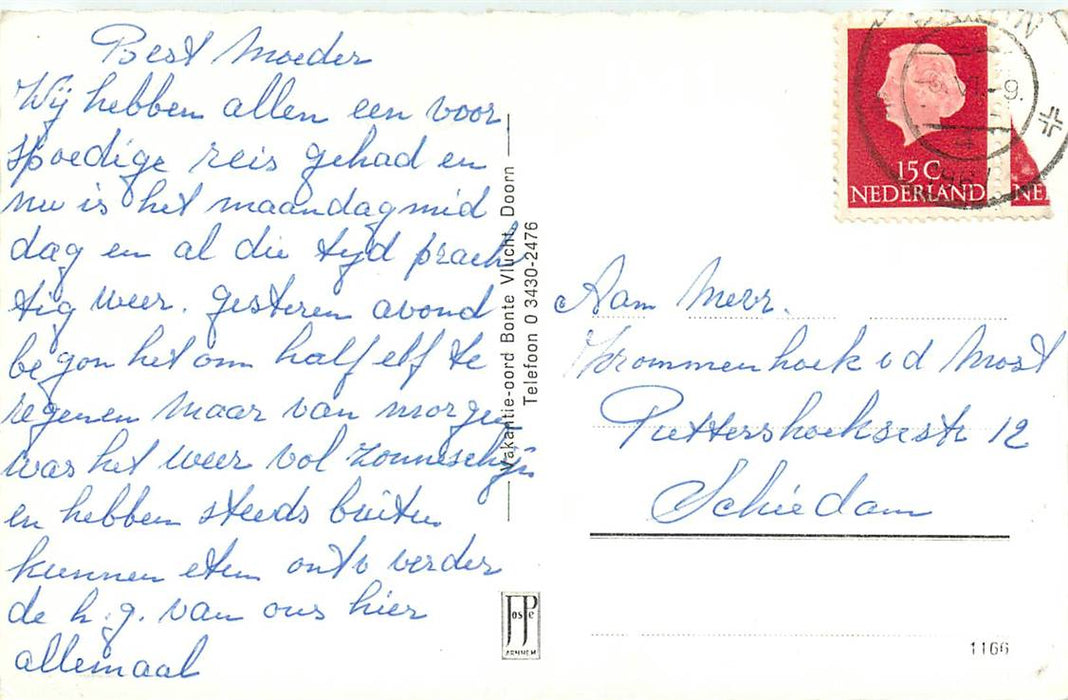 Best Moeder
Wij hebben allen een voor
spoedige reis gehad en
nu is het maandagmid
dag en al die tijd prach
tig weer. gisteren avond
begon het om half elf te
regenen maar van morgen
was het weer vol zonneschijn
en hebben steeds buiten
kunnen eten ontv verder
de h.g. van ons hier
allemaal
Vakantie-oord Bonte Vlucht Doorn
Telefoon 0 3430-2476
15 C
NEDERLAND
NE
Aan Mevr.
Krommenhoek v d Most
Puttershoeksestr 12
Schiedam
JosPe
ARNHEM
1166